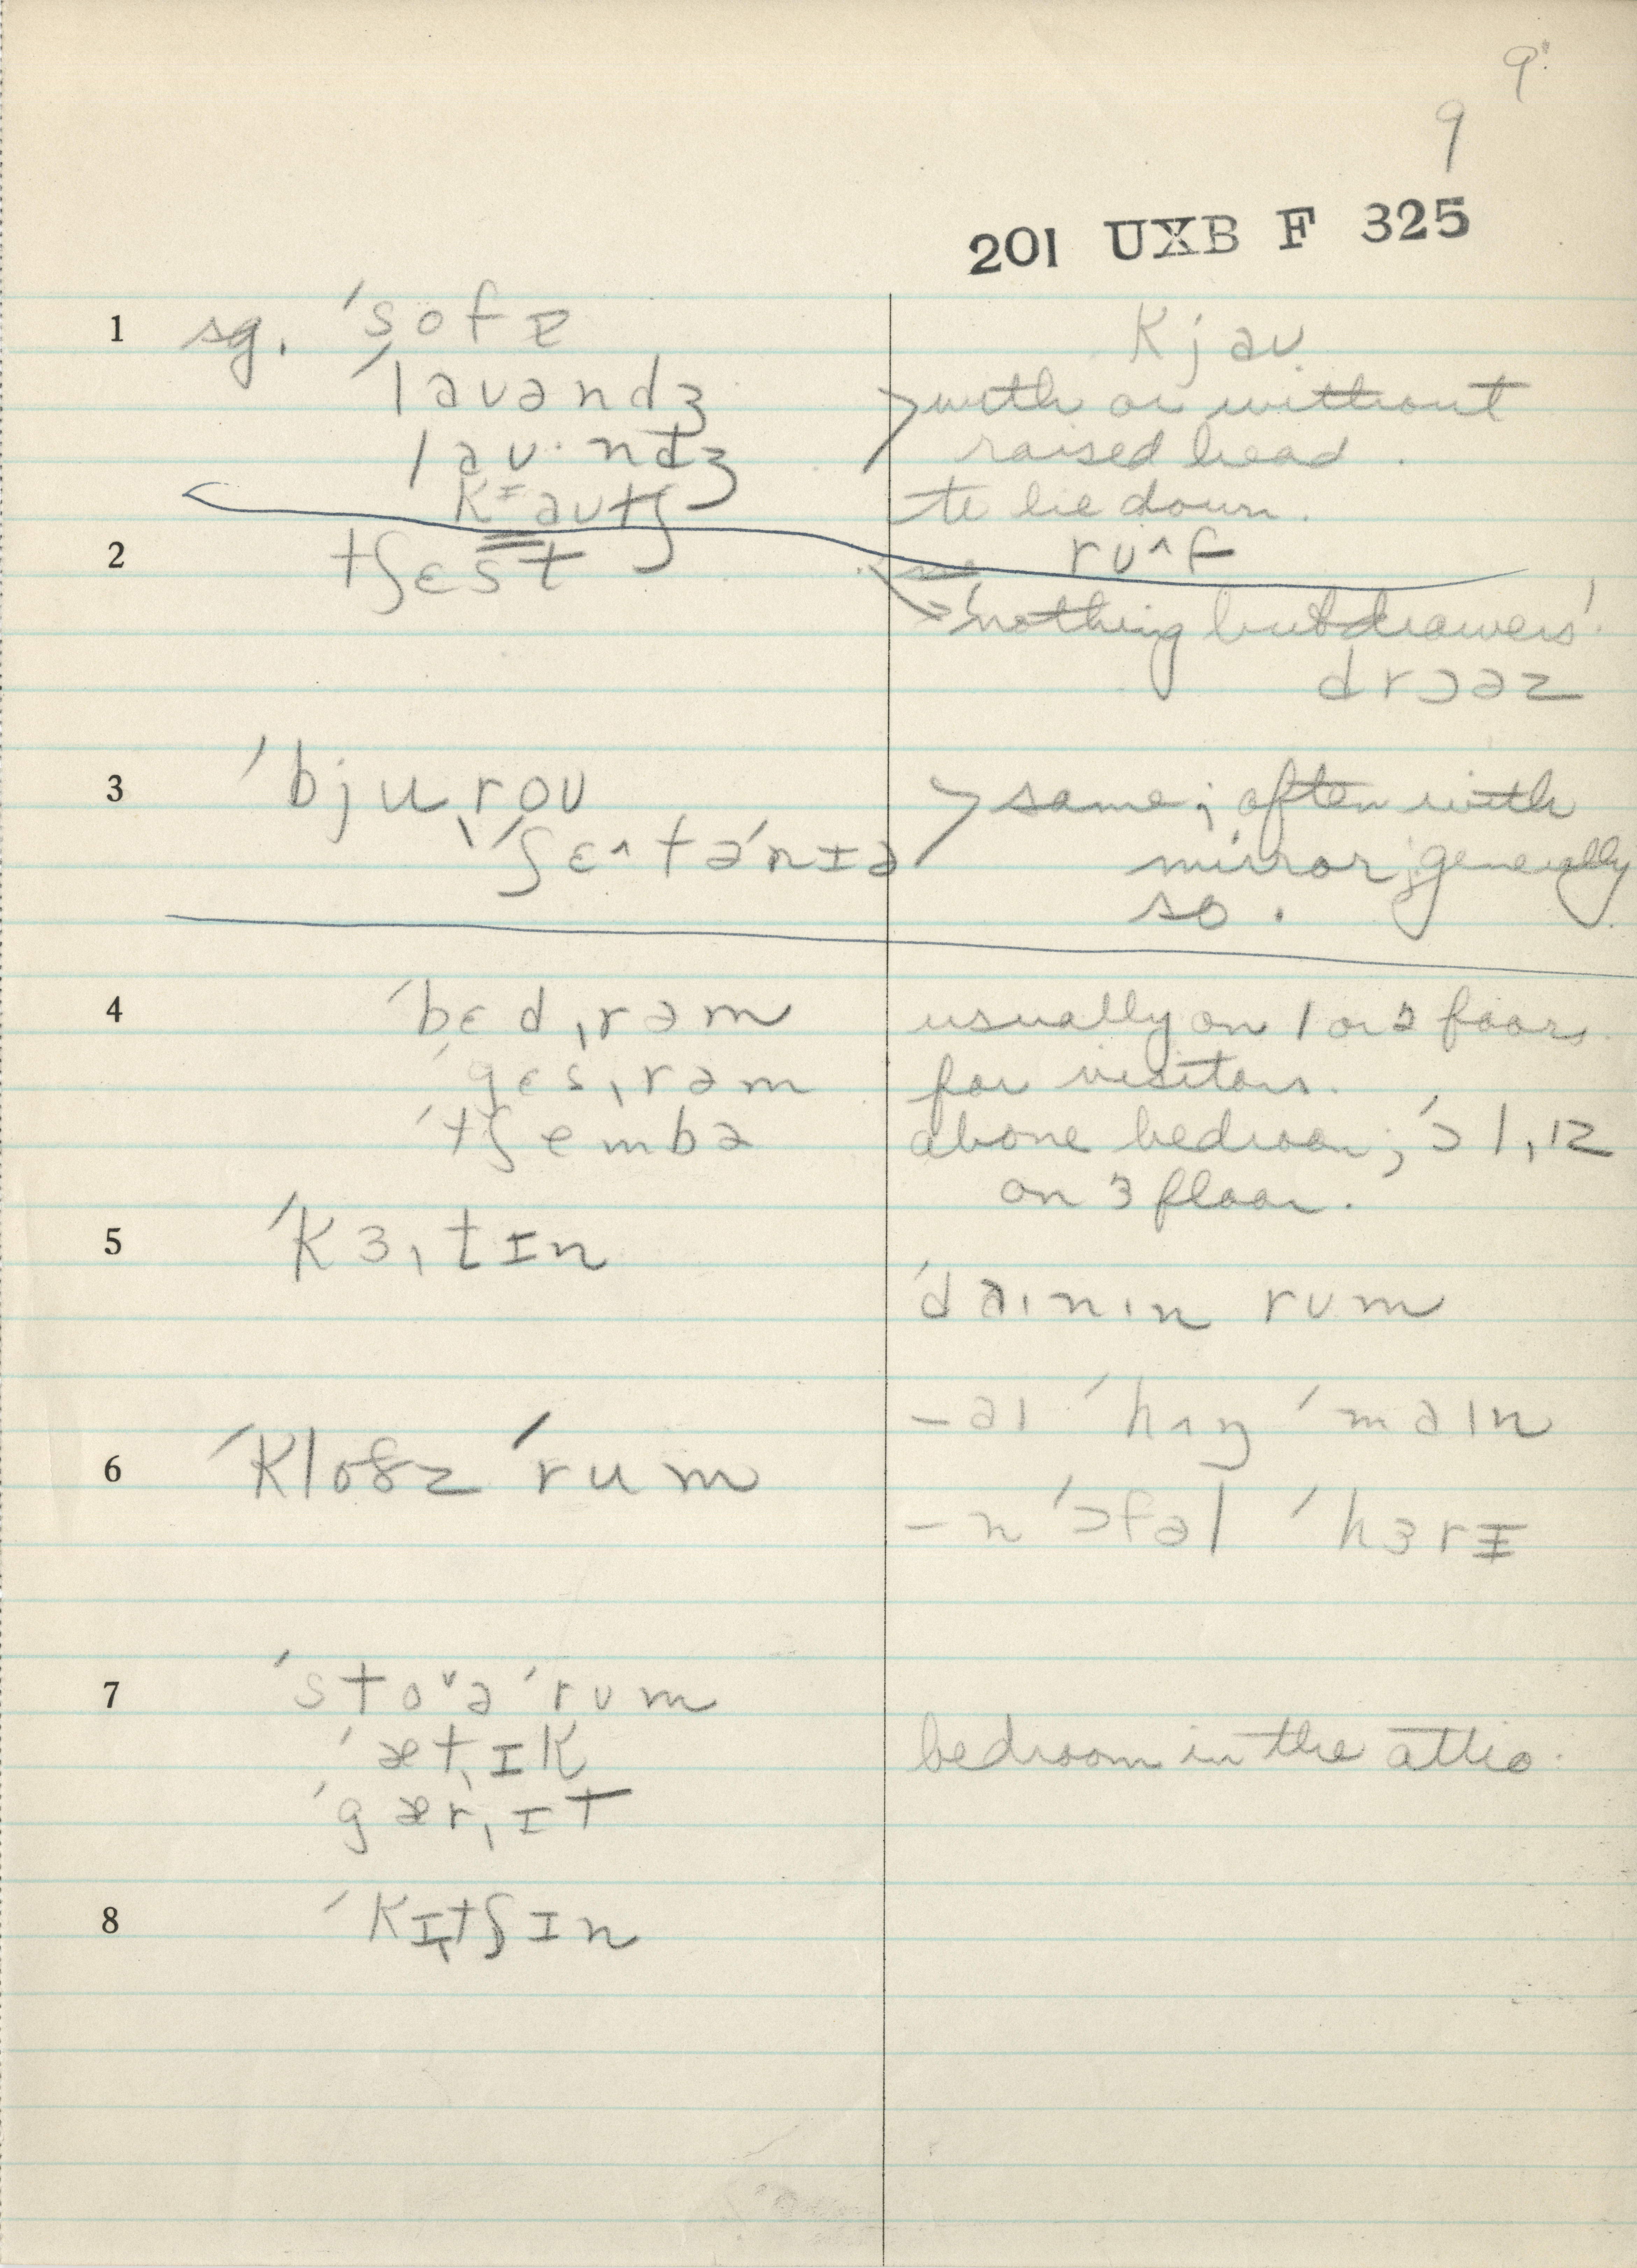 9
9
201 UXB F 325
1 sg. ˈsofɐ kjaʊ
ˈlaʊəndʒ with or without
laʊ·ndʒ raised head.
kᵻaʊtʃ to lie down.
2 tʃɛst rʊ^f
'nothing but drawers'.
drɔəz
3 ˈbjuˌroʊ same; often with
ˌʃɛ^təˈnɪə mirror; generally
so.
4 ˈbɛdˌrəm usually on 1 or 2 floors
ˈgɛsˌrəm for visitors.
ˈtʃembə above bedroom; ˈɔlˌɪz
on 3 floor.
5 ˈkɜˌtɪn
ˈdaɪnɪn rʊm
– aɪ ˈhɪŋ ˈmaɪn
6 ˈkloðz ˈrum
– n ˈɔfəl ˈhɜrɪ
7 ˈstoᵛə ˈrʊm
ˈætˌɪk bedroom in the attic.
ˈgærˌɪt
8 ˈkɪˌtʃɪn